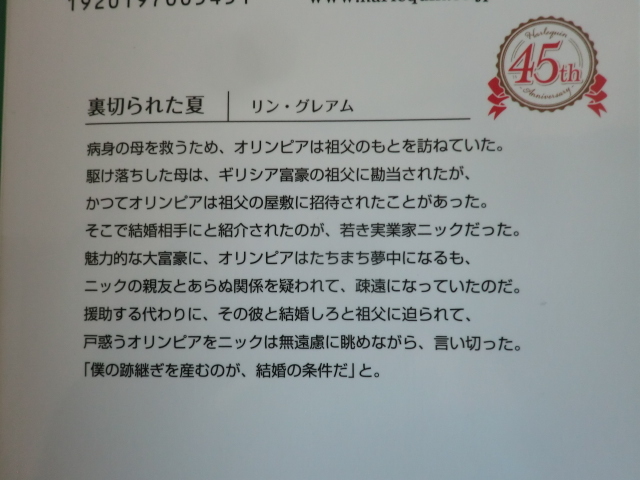 裏切られた夏 リン・グレアム
Harlequin
45th
Anniversary
病身の母を救うため、オリンピアは祖父のもとを訪ねていた。
駆け落ちした母は、ギリシア富豪の祖父に勘当されたが、
かつてオリンピアは祖父の屋敷に招待されたことがあった。
そこで結婚相手にと紹介されたのが、若き実業家ニックだった。
魅力的な大富豪に、オリンピアはたちまち夢中になるも、
ニックの親友とあらぬ関係を疑われて、疎遠になっていたのだ。
援助する代わりに、その彼と結婚しろと祖父に迫られて、
戸惑うオリンピアをニックは無遠慮に眺めながら、言い切った。
「僕の跡継ぎを産むのが、結婚の条件だ」と。